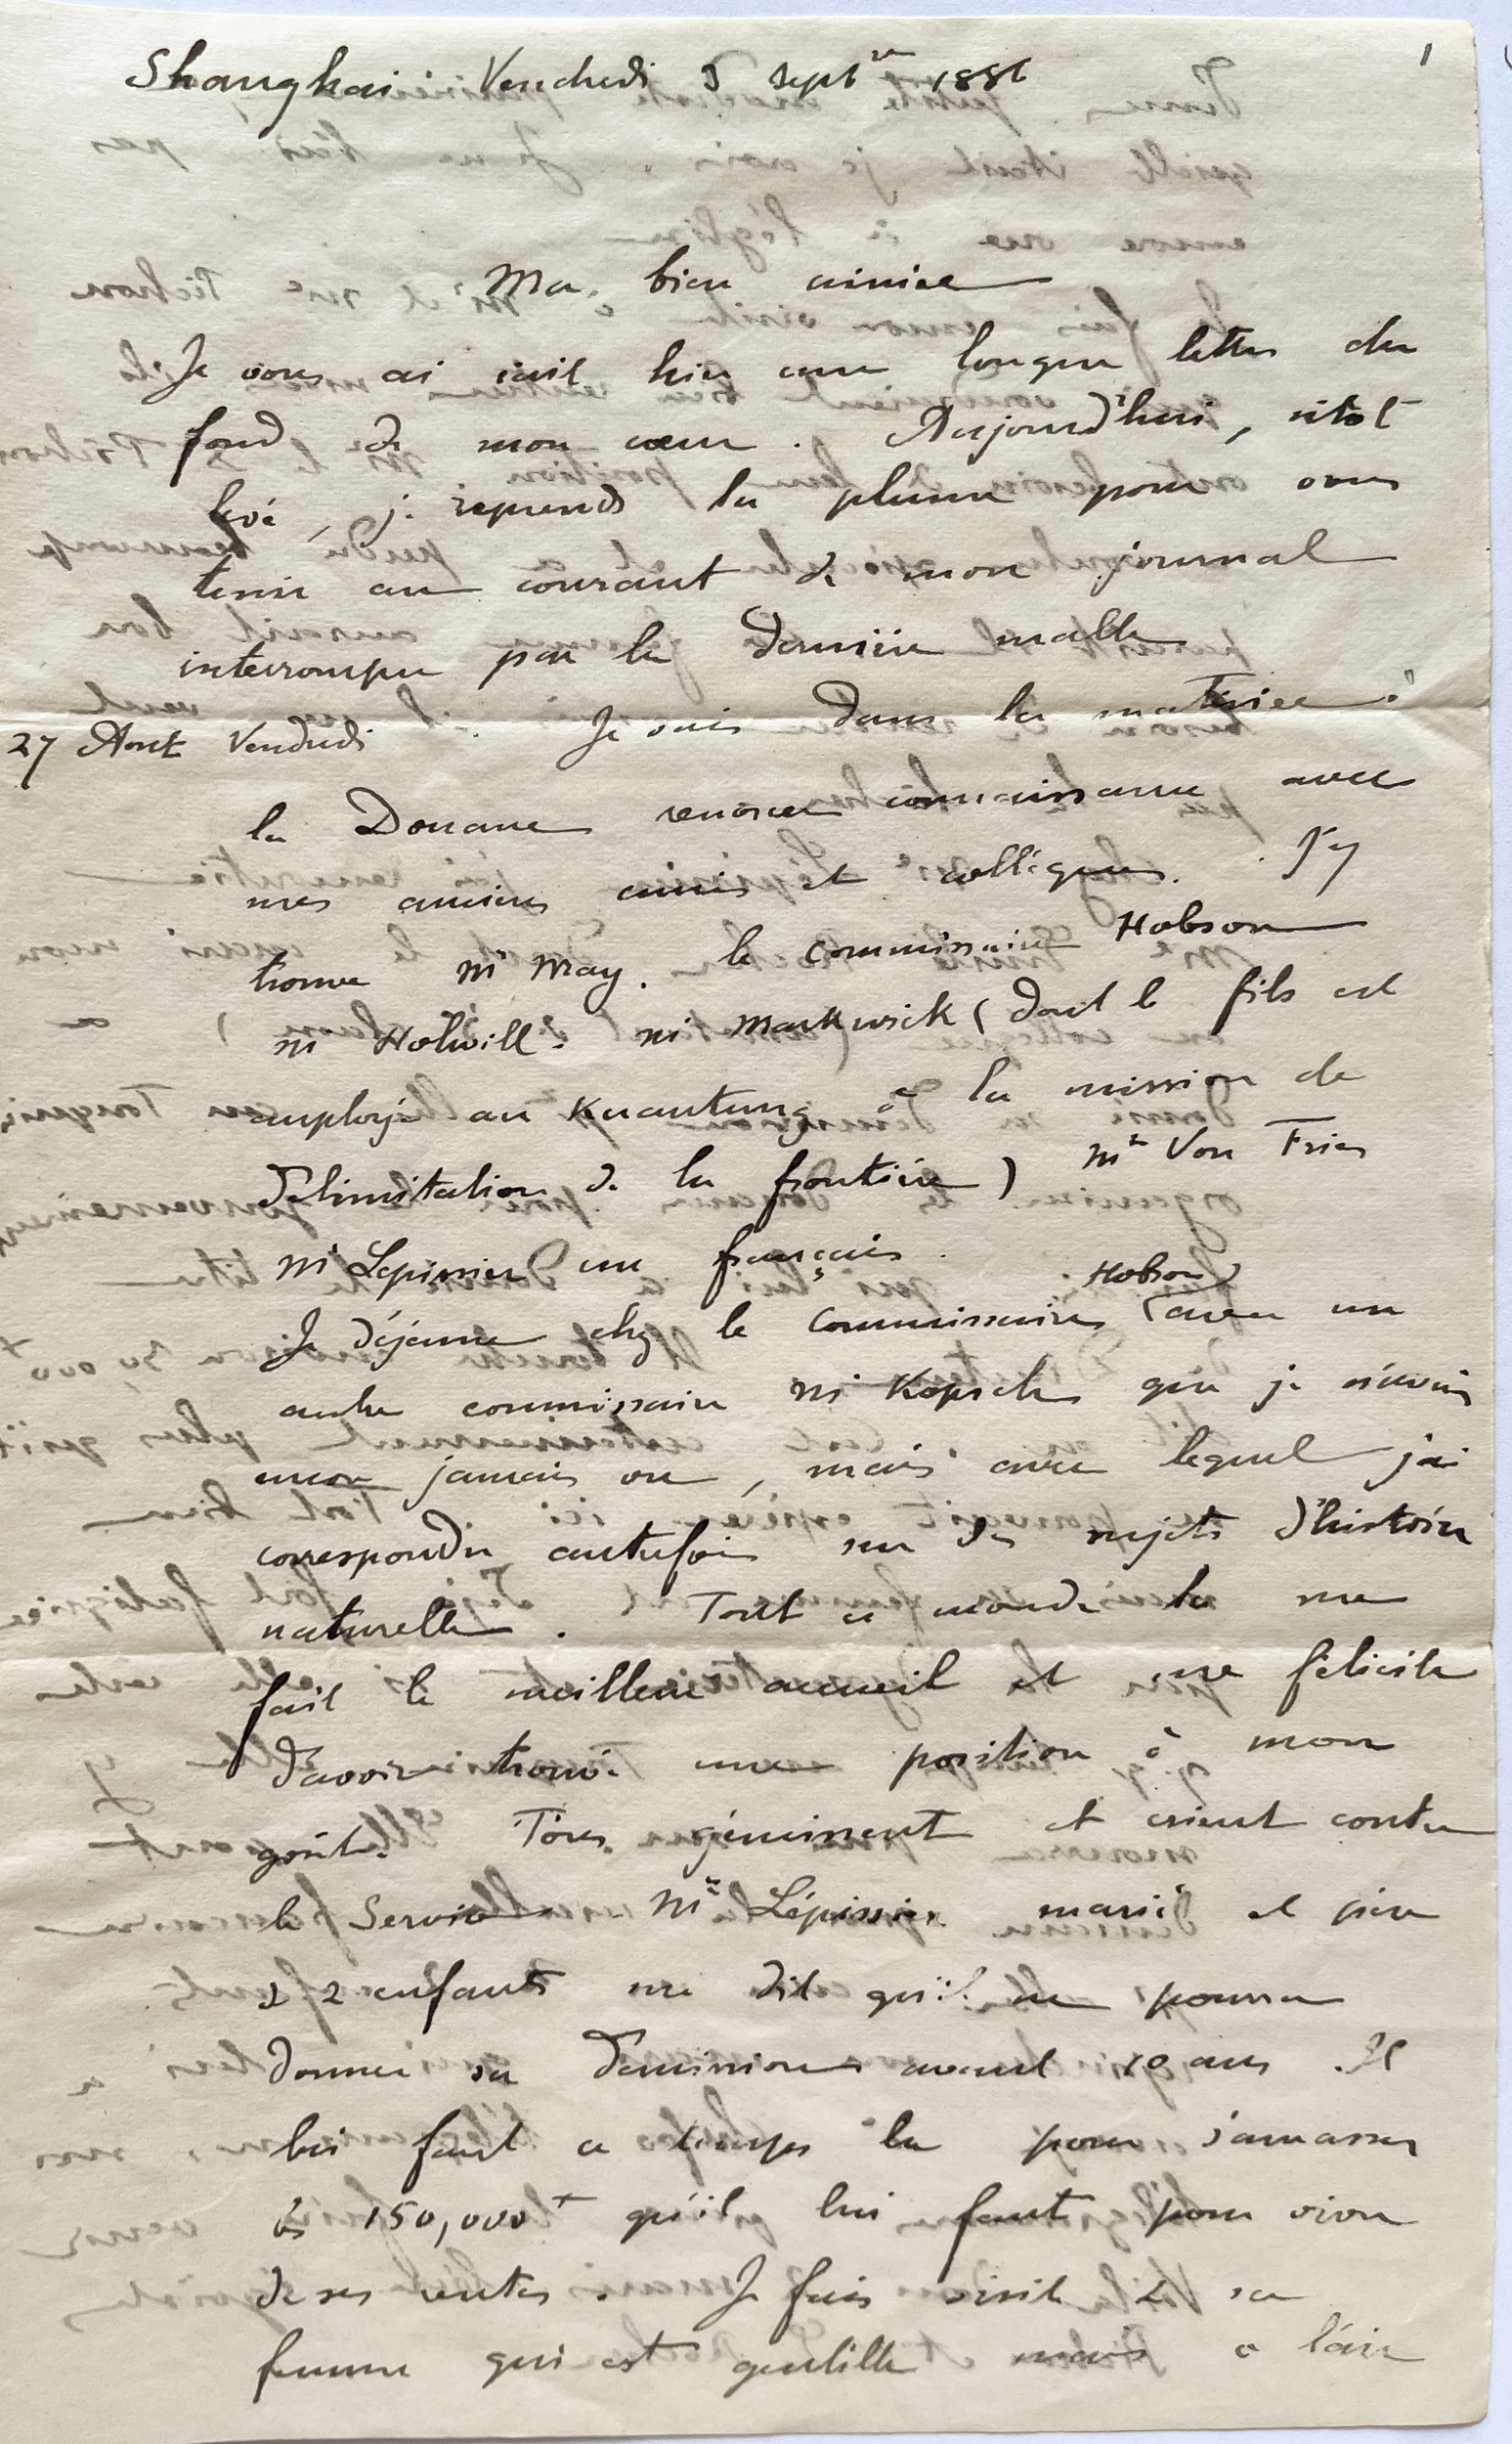 1
Shanghai Vendredi 3 Sept^re 1886
Ma bien aimée
Je vous ai écrit hier une longue lettre du
fond de mon cœur. Aujourd'hui, sitôt
levé, je reprends la plume pour vous
tenir au courant de mon journal
interrompu par la dernière malle
27 Aout Vendredi. Je vais dans la matinée à
la Douane renouer connaissance avec
mes anciens amis et collègues. J'y
trouve Mr May. le commissaire Hobson
Mr Holwill. Mr Markwick (dont le fils est
employé au Kuantung à la mission de
délimitation de la frontière) Mr Von Fries
Mr Lepissier un français.
Je déjeune chez le Commissaire Hobson (avec un
autre commissaire Mr Kopsch que je n'avais
encore jamais vu, mais avec lequel j'ai
correspondu autrefois sur des sujets d'histoire
naturelle. Tout ce monde là me
fait le meilleur accueil et me félicite
d'avoir trouvé une position à mon
goût. Tous gémissent et crient contre
le Service. Mr Lépissier marié et père
de 2 enfants me dit qu'il ne pourra
donner sa démission avant 10 ans. Il
lui faut ce temps là pour s'amasser
les 150,000f qu'il lui faut pour vivre
de ses rentes. Je fais visite à sa
femme qui est gentille mais a l'air